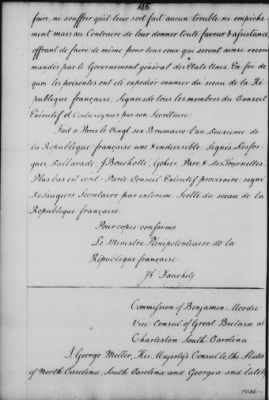 faire, ne souffrir qu'il leur soit fait aucun trouble ni empêche
ment mais au Contraire de leur donner toute faveur & assistance,
offrant de faire de même pour tous ceux qui seront ainsi recom
mandés par le Gouvernement général des Etats Unis. En foi de
quoi les présentes ont été expédiées munies du sceau de la Ré
publique française, Signées de tous les membres du Conseil
Exécutif et Contresignées par son Secrétaire.
Fait à Paris le Vingt six Brumaire l'an deuxieme de
la République française une et indivisible. Signés, Desfor
gues, Daldarade, J. Bouchotte, Gohier, Paré, & Destournelles.
Plus bas est écrit - Par le Conseil Exécutif provisoire signé
Desaugiers Secretaire par interim. Scellé du sceau de la
République française
Pour copie conforme
Le Ministre Plenipotentiaire de la
République française
Jh Fauchet
Commission of Benjamin Moodie
Vice Consul of Great Britain at
Charleston South Carolina
I, George Miller, His Majesty's Consul to the States
of North Carolina, South Carolina and Georgia and late